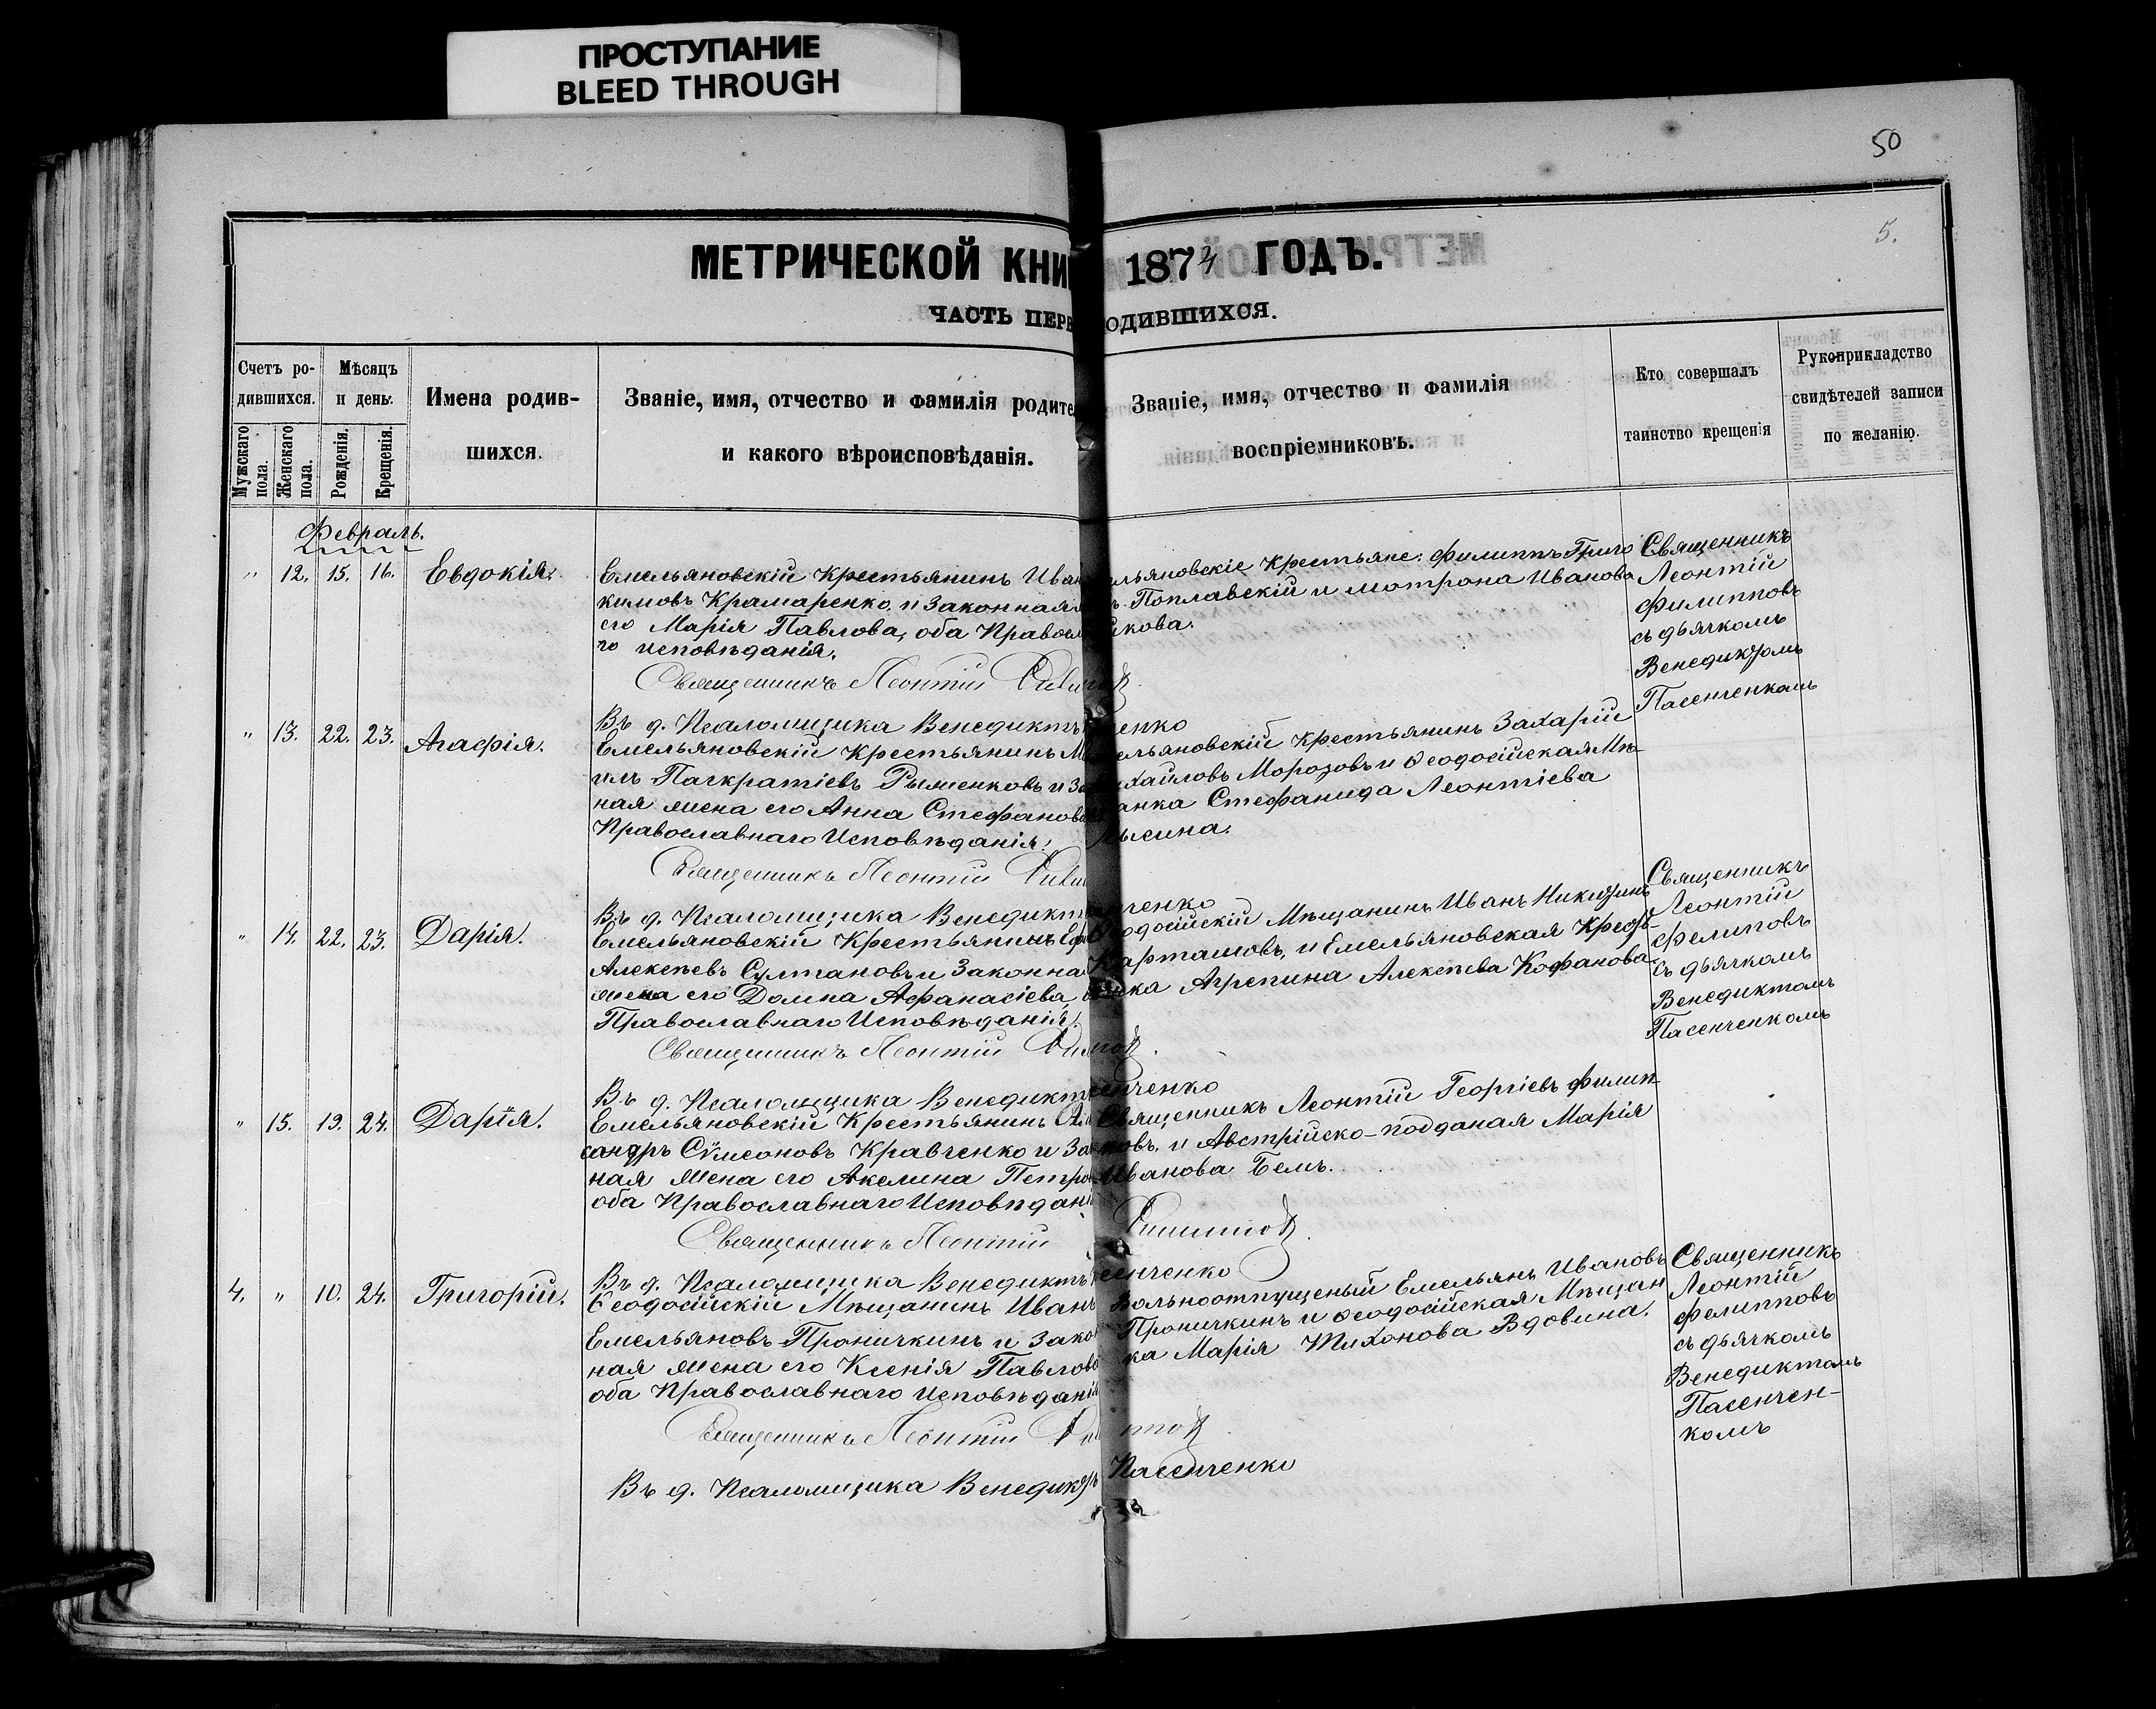 ПРОСТУПАНИЕ
BLEED THROUGH
50
5.
МЕТРИЧЕСКОЙ КНИ 187 ГОДЪ.
ЧАСТЬ ПЕРВ ОДИВШИХСЯ.
Счетъ ро-
дившихся.
Мужскаго пола.
Женскаго пола.
Мѣсяцъ
и день.
Рожденія.
Крещенія.
Имена родив-
шихся.
Званіе, имя, отчество и фамилія родите
и какого вѣроисповѣданія.
Званіе, имя, отчество и фамилія
воспріемниковъ.
Кто совершалъ
таинство крещенія
Рукоприкладство
свидѣтелей записи
по желанію.
Февраль.
" 12. 15. 16. Евдокія.
Емельяновскій Крестьянинъ Иван
кимовъ Крамаренко, и Законная
его Марія Павлова, оба Правосл
го исповѣданія.
Священникъ Леонтій
льяновскіе Крестьяне: Филиппъ Григо
Поплавскій и Мотрона Иванова
икова.
Священникъ
Леонтій
Филипповъ
съ дьячкомъ
Венедиктомъ
Пасенченкомъ
Въ д. Псаломщика Венедиктъ енко
" 13. 22. 23. Агафія.
Емельяновскій Крестьянинъ М
илъ Панкратіевъ Рыженковъ и За
ная жена его Анна Стефанов
Православнаго Исповѣданія.
Священникъ Леонтій
ельяновскій Крестьянинъ Захарій
хайловъ Морозовъ и Ѳеодосійская Мѣ-
анка Стефанида Леонтіева
ысина.
Въ д. Псаломщика Венедикт ченко
" 14. 22. 23. Дарія.
Емельяновскій Крестьянинъ
Алексѣевъ Султановъ и Законна
жена его Домна Афанасіева,
Православнаго Исповѣданія.
Священникъ Леонтій
одосійскій Мѣщанинъ Иванъ Никитинъ
Карташовъ, и Емельяновская Кресть-
янка Агрепина Алексѣева Кофанова.
Священникъ
Леонтій
Фелиповъ
съ дьячкомъ
Венедиктомъ
Пасенченкомъ
Въ д. Псаломщика Венедикт енченко
" 15. 19. 24. Дарія.
Емельяновскій Крестьянинъ Але
сандръ Сѵмеоновъ Кравченко и Зак
ная жена его Акелина Петро
оба Православнаго Исповѣдані
Священникъ Леонтій
Священникъ Леонтій Георгіевъ Филип-
повъ, и Австрійско-подданая Марія
Иванова Бемъ.
Въ д. Псаломщика Венедиктъ енченко
4. " 10. 24. Григорій.
Ѳеодосійскій Мѣщанинъ Иванъ
Емельяновъ Проничкинъ и Зако
ная жена его Ксенія Павлов
оба Православнаго Исповѣданія
Священникъ Леонтій
Вольноотпущеный Емельянъ Ивановъ
Проничкинъ и Ѳеодосійская Мѣщан
ка Марія Тихонова Вдовина.
Священникъ
Леонтій
Фелипповъ
съ дьячкомъ
Венедиктомъ
Пасенчен-
комъ
Въ д. Псаломщика Венедиктъ Пасенченко